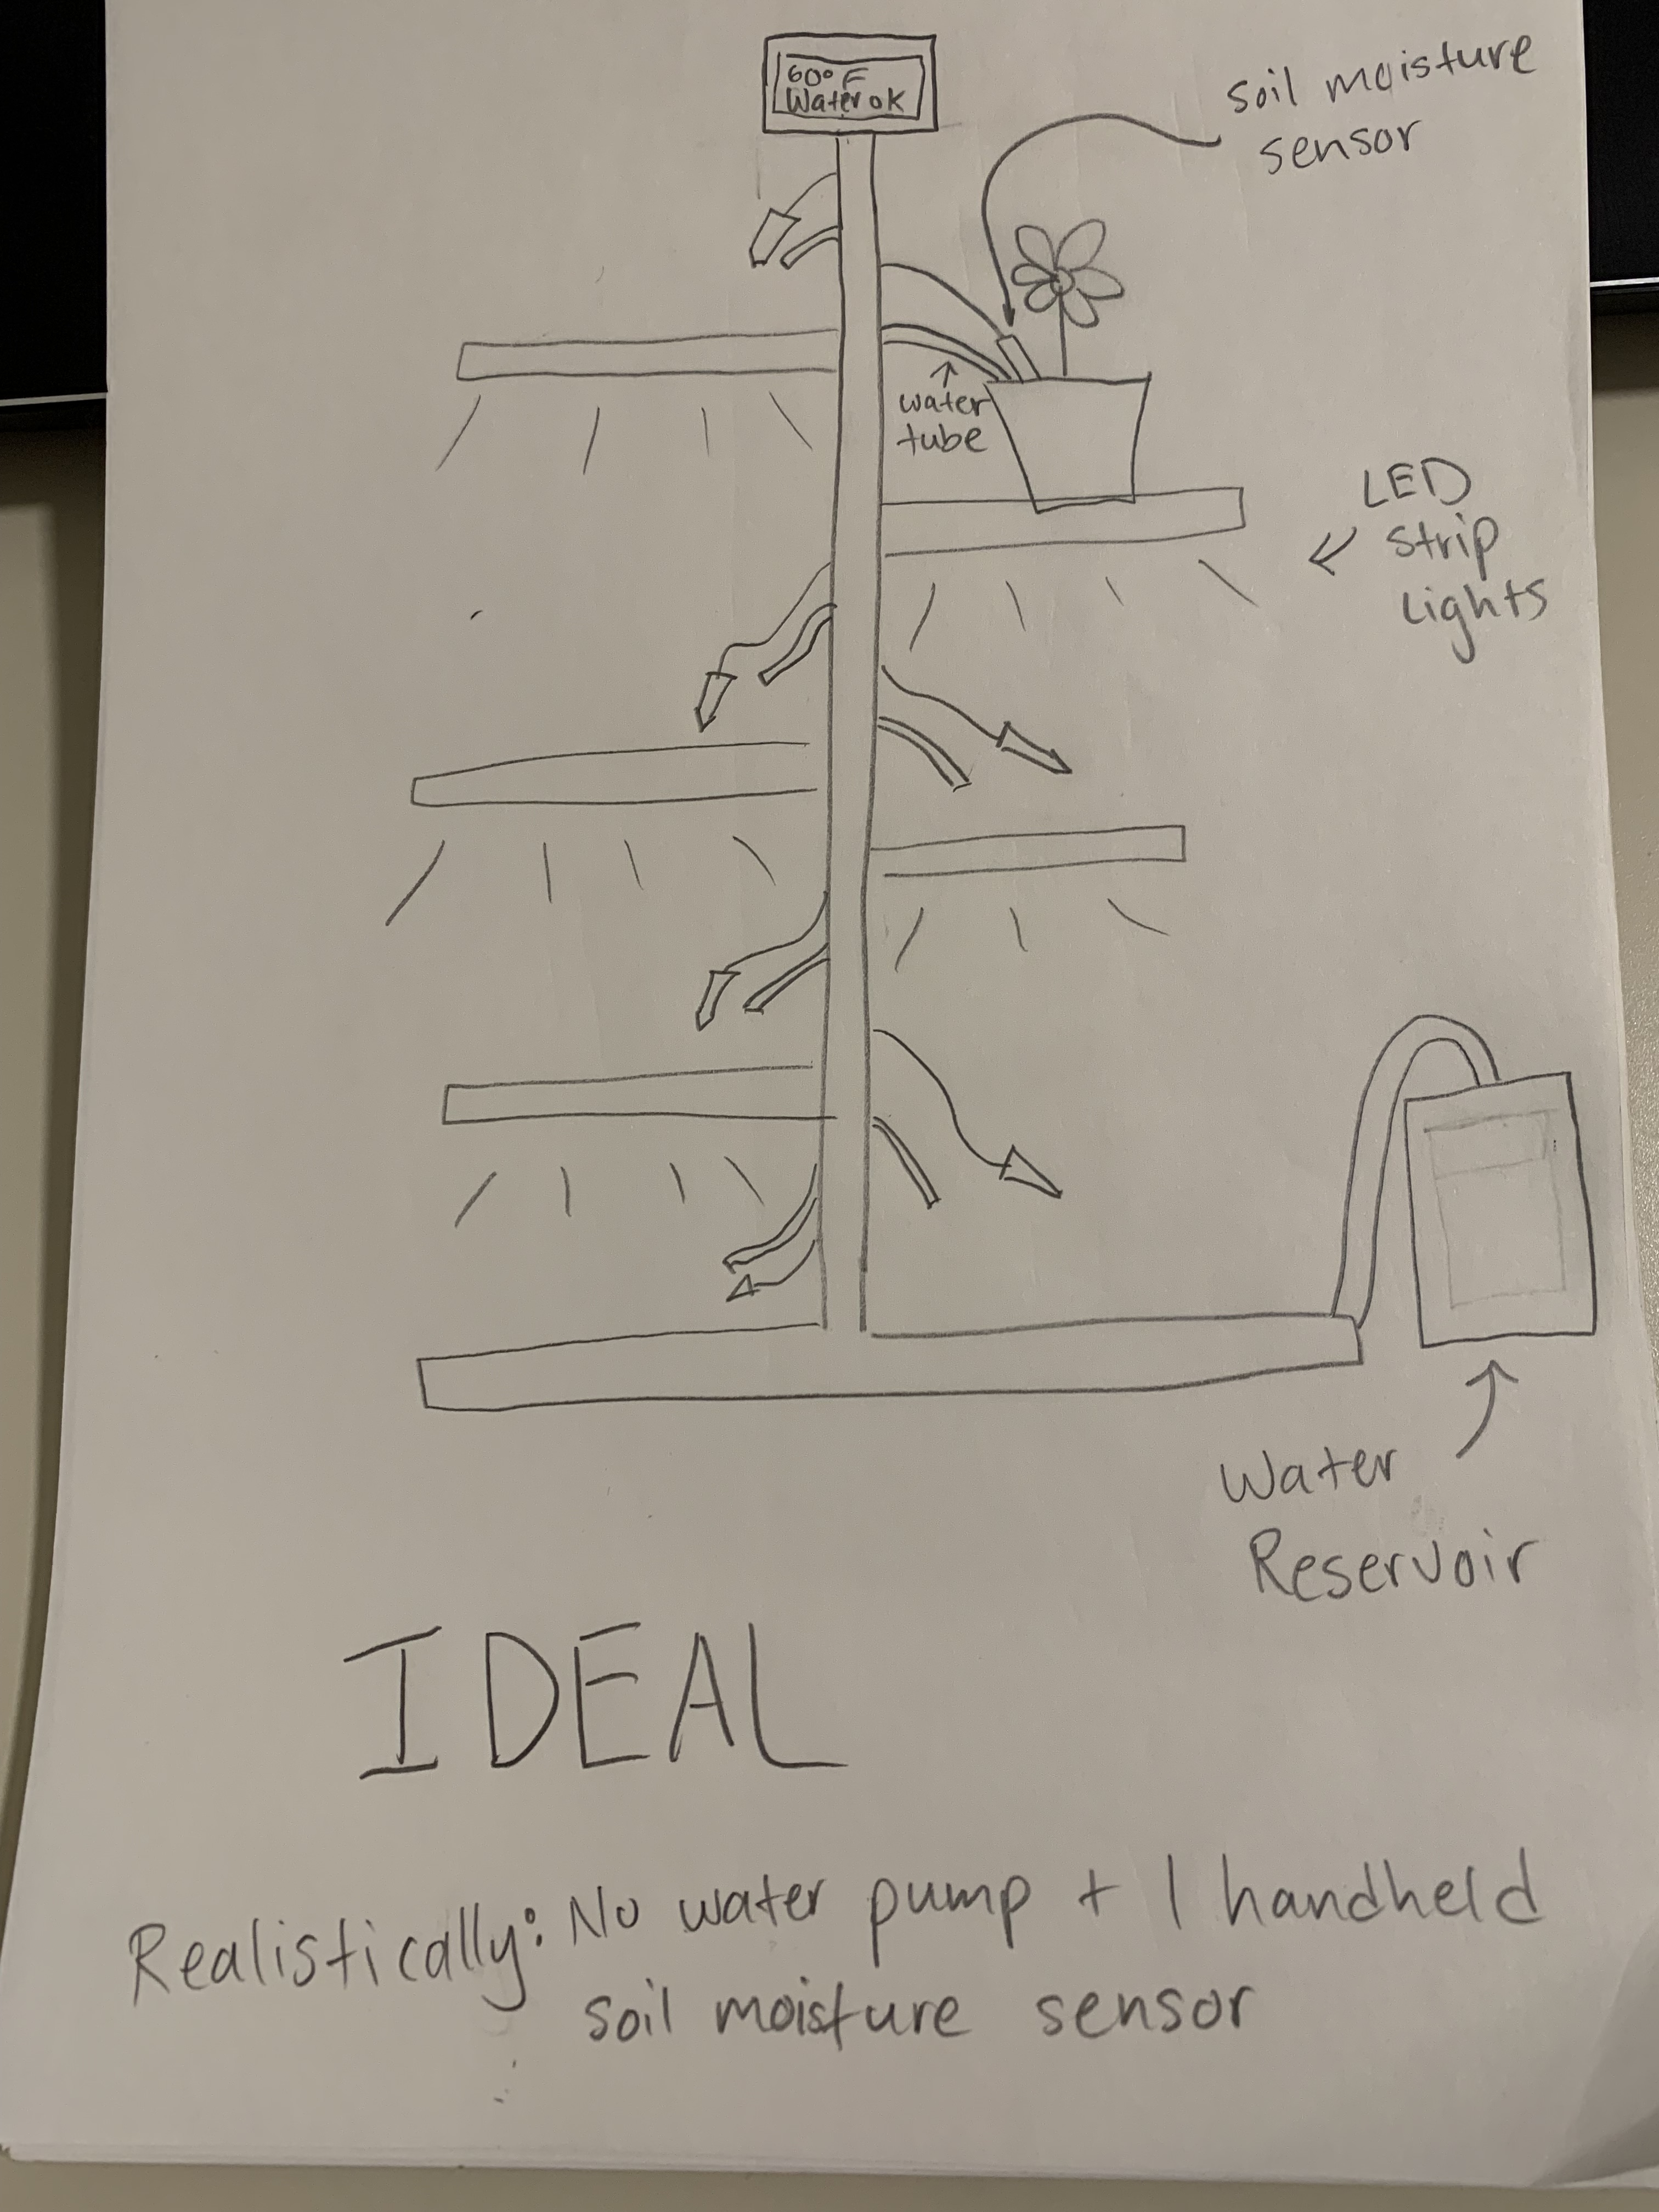 60° F
Water ok
soil moisture
sensor
water
tube
LED
Strip
Lights
Water
Reservoir
IDEAL
Realistically: No water pump + 1 handheld
soil moisture sensor